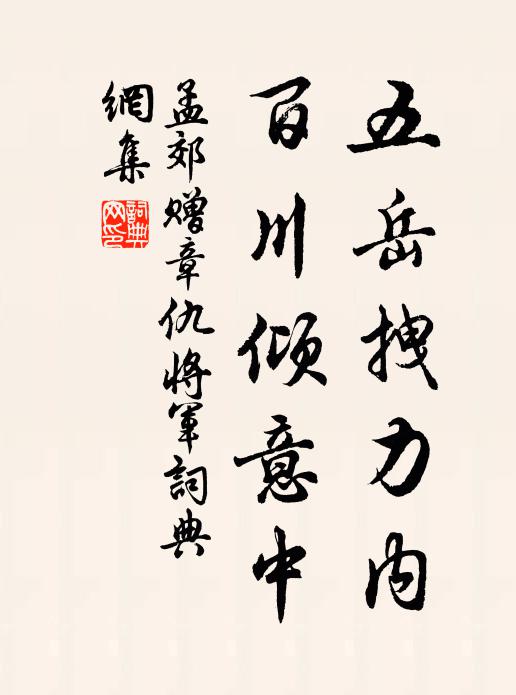 五岳拽力内
百川倾意中
孟郊赠章仇将军詞典
網集
詞典網印